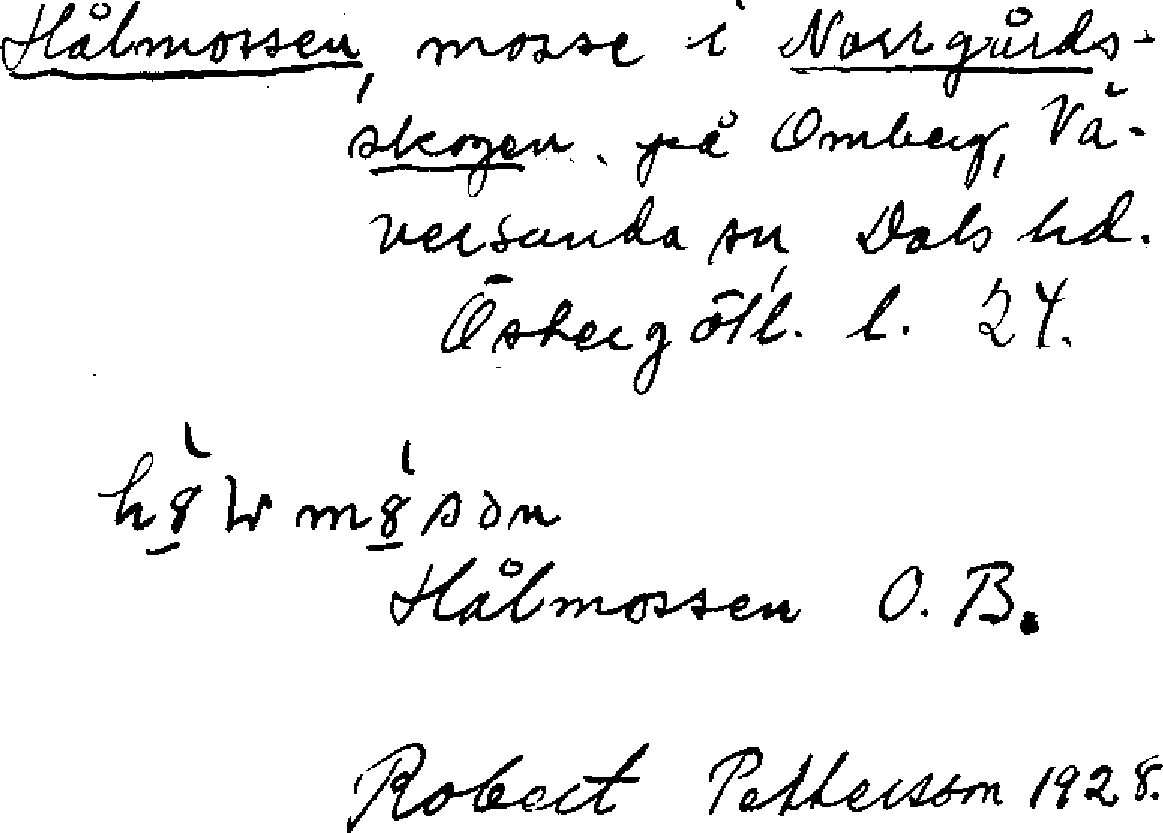 Hålmossen, mosse i Norrgårds-
skogen på Omberg, Vä-
versunda sn, Dals hd.
Östergötl. l. 24.
Hålmossen O. B.
Robert Pettersson 1928.